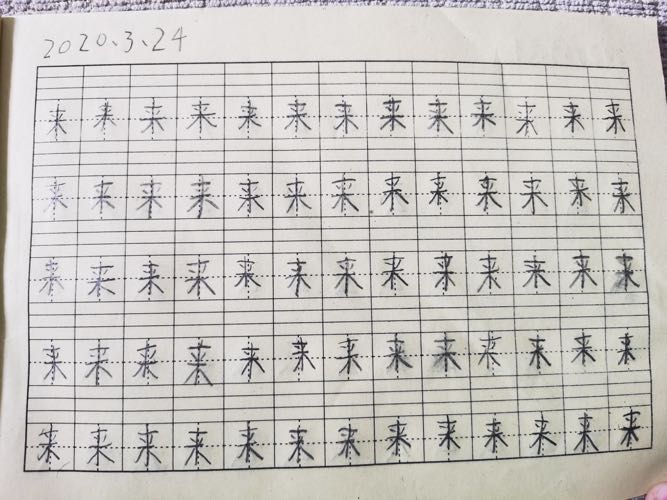 2020、3、24
来来来来来来来来来来来来来
来来来来来来来来来来来来来
来来来来来来来来来来来来来
来来来来来来来来来来来来来
来来来来来来来来来来来来来